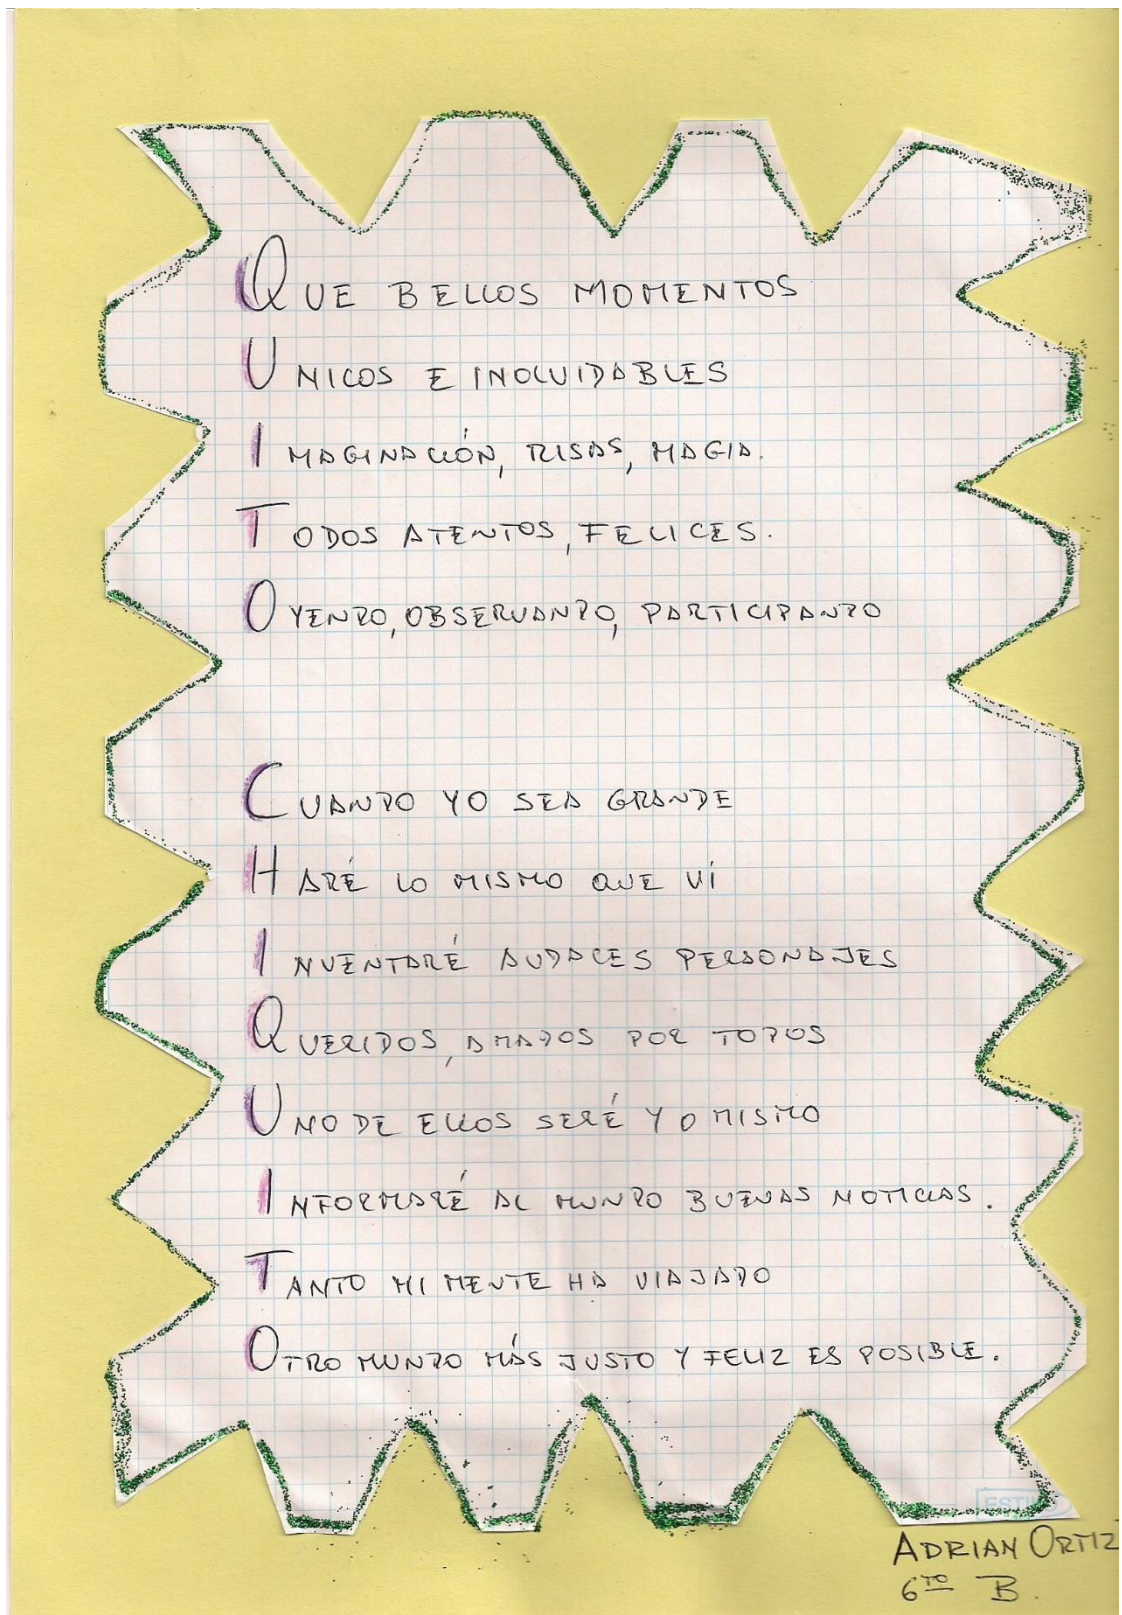 QUE BELLOS MOMENTOS
UNICOS E INOLVIDABLES
IMAGINACIÓN, RISAS, MAGIA.
TODOS ATENTOS, FELICES.
OYENDO, OBSERVANDO, PARTICIPANDO
CUANDO YO SEA GRANDE
HARÉ LO MISMO QUE VÍ
INVENTARÉ AUDACES PERSONAJES
QUERIDOS, AMADOS POR TODOS
UNO DE ELLOS SERÉ YO MISMO
INFORMARÉ AL MUNDO BUENAS NOTICIAS.
TANTO MI MENTE HA VIAJADO
OTRO MUNDO MÁS JUSTO Y FELIZ ES POSIBLE.
ADRIAN ORTIZ
6TO B.